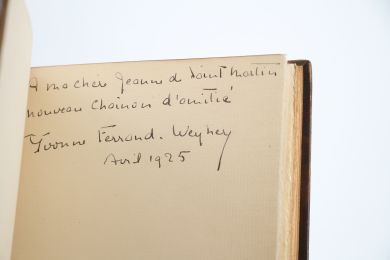 A ma chère Jeanne de Saint Martin
nouveau chaînon d'amitié
Yvonne Ferrand-Weyher
Avril 1925